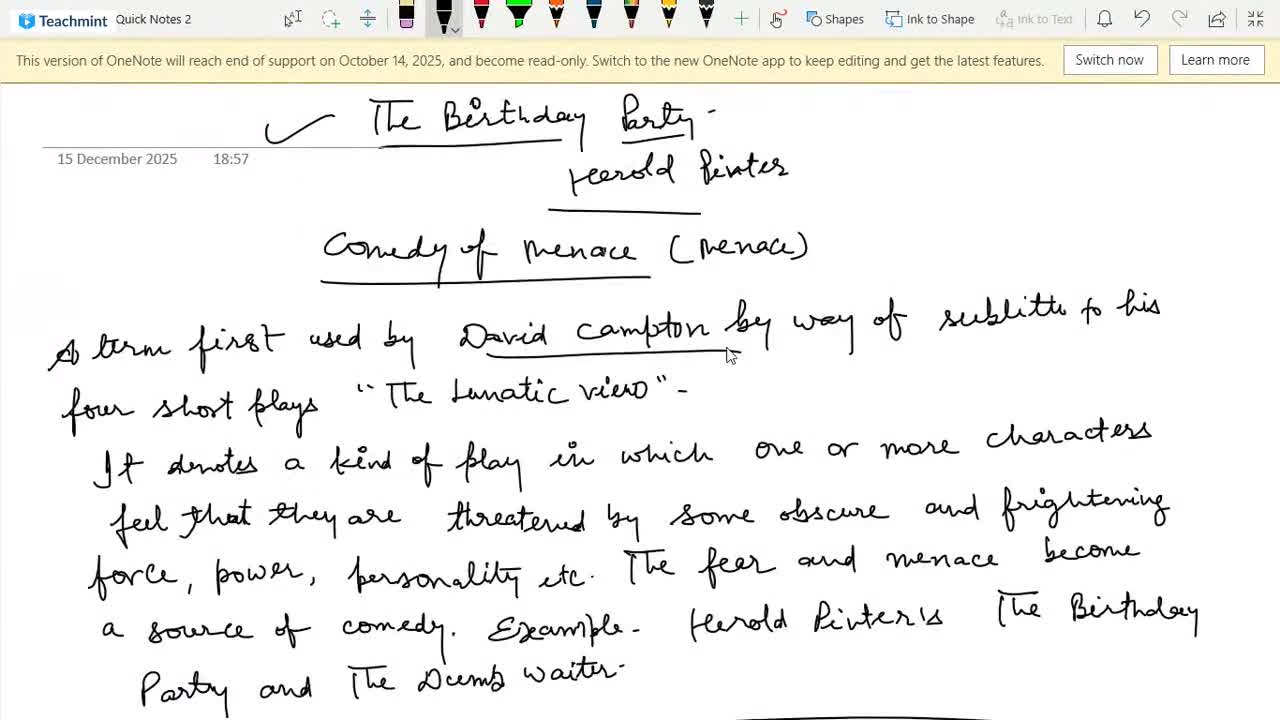 Teachmint Quick Notes 2 Shapes Ink to Shape Ink to Text
This version of OneNote will reach end of support on October 14, 2025, and become read-only. Switch to the new OneNote app to keep editing and get the latest features. Switch now Learn more
The Birthday Party -
15 December 2025 18:57
Herold Pinter
Comedy of menace (menace)
A term first used by David Campton by way of subtitle to his
four short plays "The Lunatic view" -
It denotes a kind of play in which one or more characters
feel that they are threatened by some obscure and frightening
force, power, personality etc. The fear and menace become
a source of comedy. Example - Herold Pinter's The Birthday
Party and The Dumb waiter -